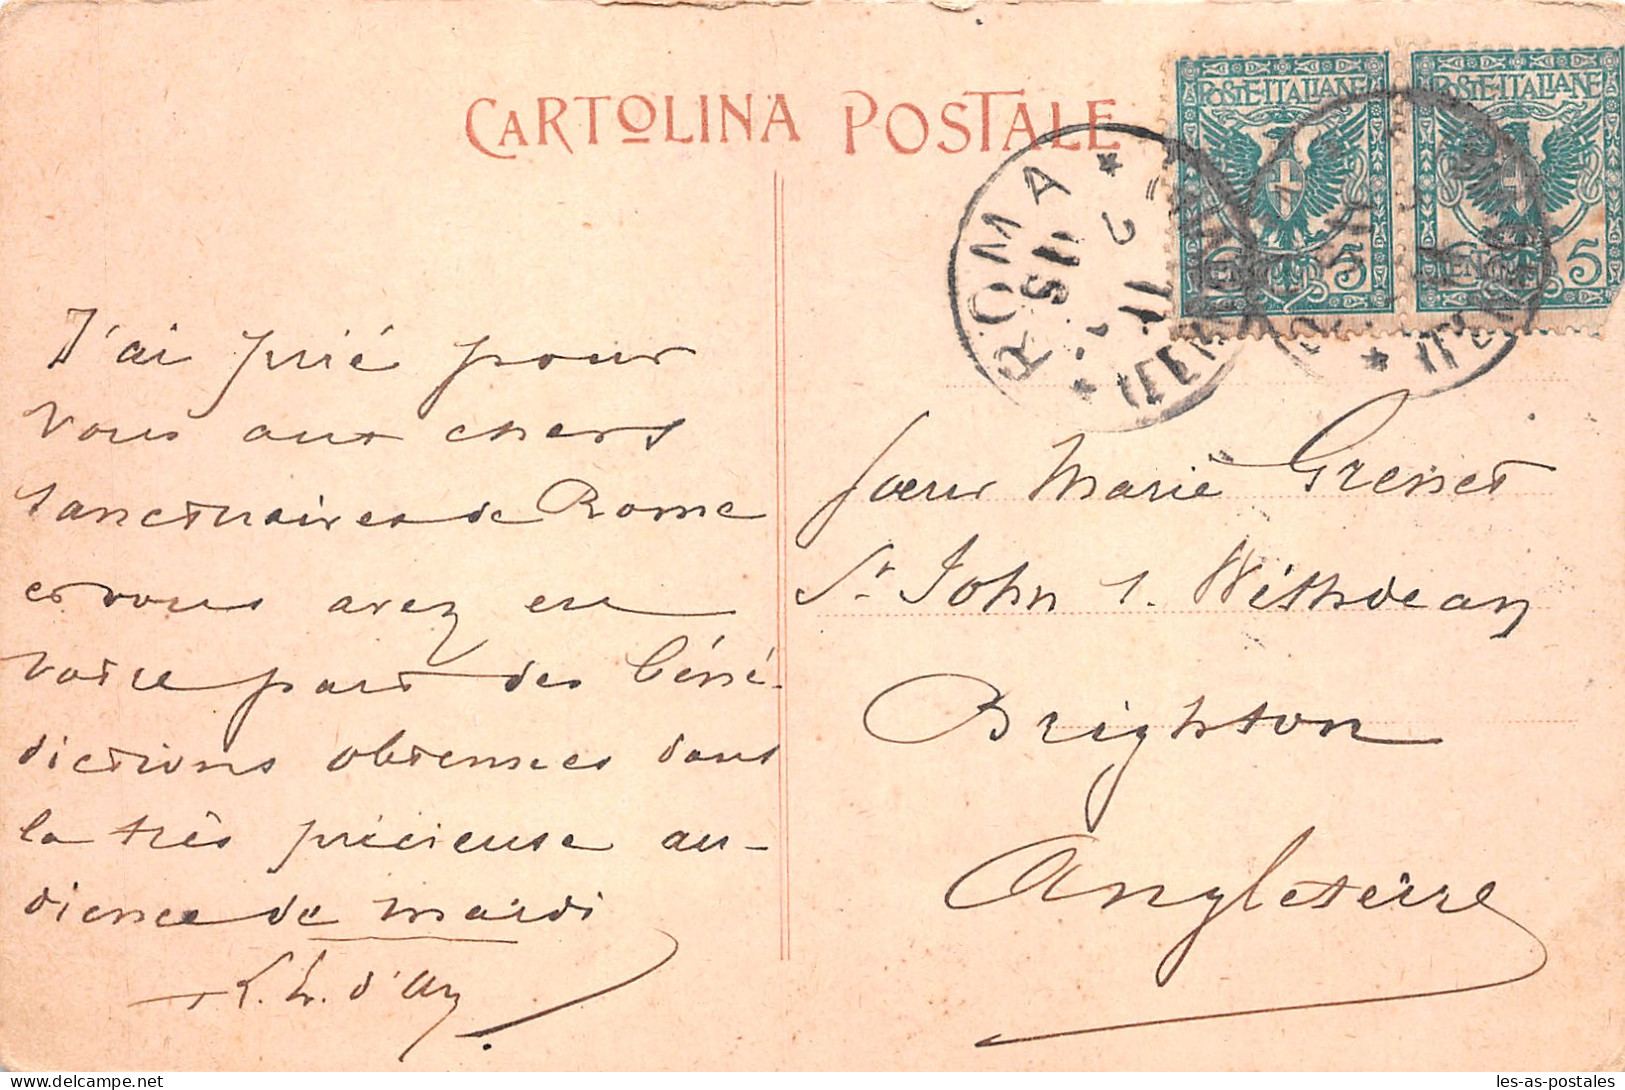 CARTOLINA POSTALE
POSTE·ITALIANE
POSTE·ITALIANE
5
5
ROMA
11
2 11
J'ai prié pour
vous aux chers
sanctuaires de Rome
et vous avez eu
votre part des béné-
dictions obtenues dans
la très précieuse au-
dience de mardi
d'
Soeur Marie Grenet
St John's. Withdean
Brighton
Angleterre
les-as-postales